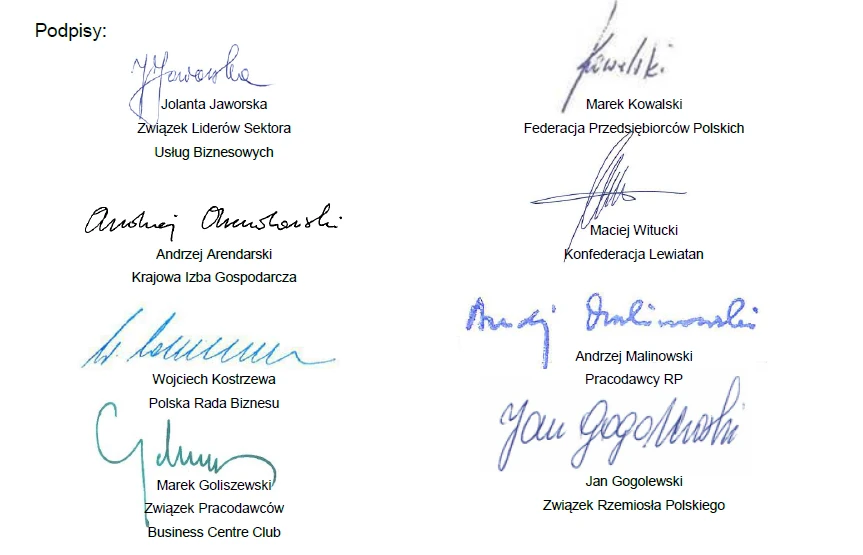 Podpisy:
J Jaworska
Jolanta Jaworska
Związek Liderów Sektora
Usług Biznesowych
Kowalski
Marek Kowalski
Federacja Przedsiębiorców Polskich
Andrzej Arendarski
Andrzej Arendarski
Krajowa Izba Gospodarcza
Maciej Witucki
Konfederacja Lewiatan
Wojciech Kostrzewa
Polska Rada Biznesu
Andrzej Malinowski
Andrzej Malinowski
Pracodawcy RP
Marek Goliszewski
Związek Pracodawców
Business Centre Club
Jan Gogolewski
Jan Gogolewski
Związek Rzemiosła Polskiego